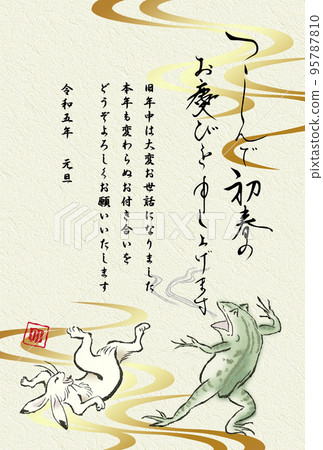 つゝしんで初春の
お慶びを申し上げます
旧年中は大変お世話になりました
本年も変わらぬお付き合いを
どうぞよろしくお願いいたします
令和五年　元旦
卯
PIXTA
95787810